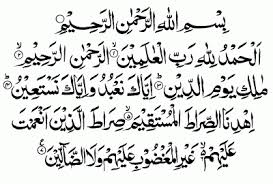 بِسْمِ اللهِ الرَّحْمٰنِ الرَّحِيْمِ ۝
اَلْحَمْدُ لِلّٰهِ رَبِّ الْعٰلَمِيْنَ ۝١ الرَّحْمٰنِ الرَّحِيْمِ ۝٢
مٰلِكِ يَوْمِ الدِّيْنِ ۝٣ اِيَّاكَ نَعْبُدُ وَاِيَّاكَ نَسْتَعِيْنُ ۝٤
اِهْدِنَا الصِّرَاطَ الْمُسْتَقِيْمَ ۝٥ صِرَاطَ الَّذِيْنَ اَنْعَمْتَ
عَلَيْهِمْ ۝٦ غَيْرِ الْمَغْضُوْبِ عَلَيْهِمْ وَلَا الضَّآلِّيْنَ ۝